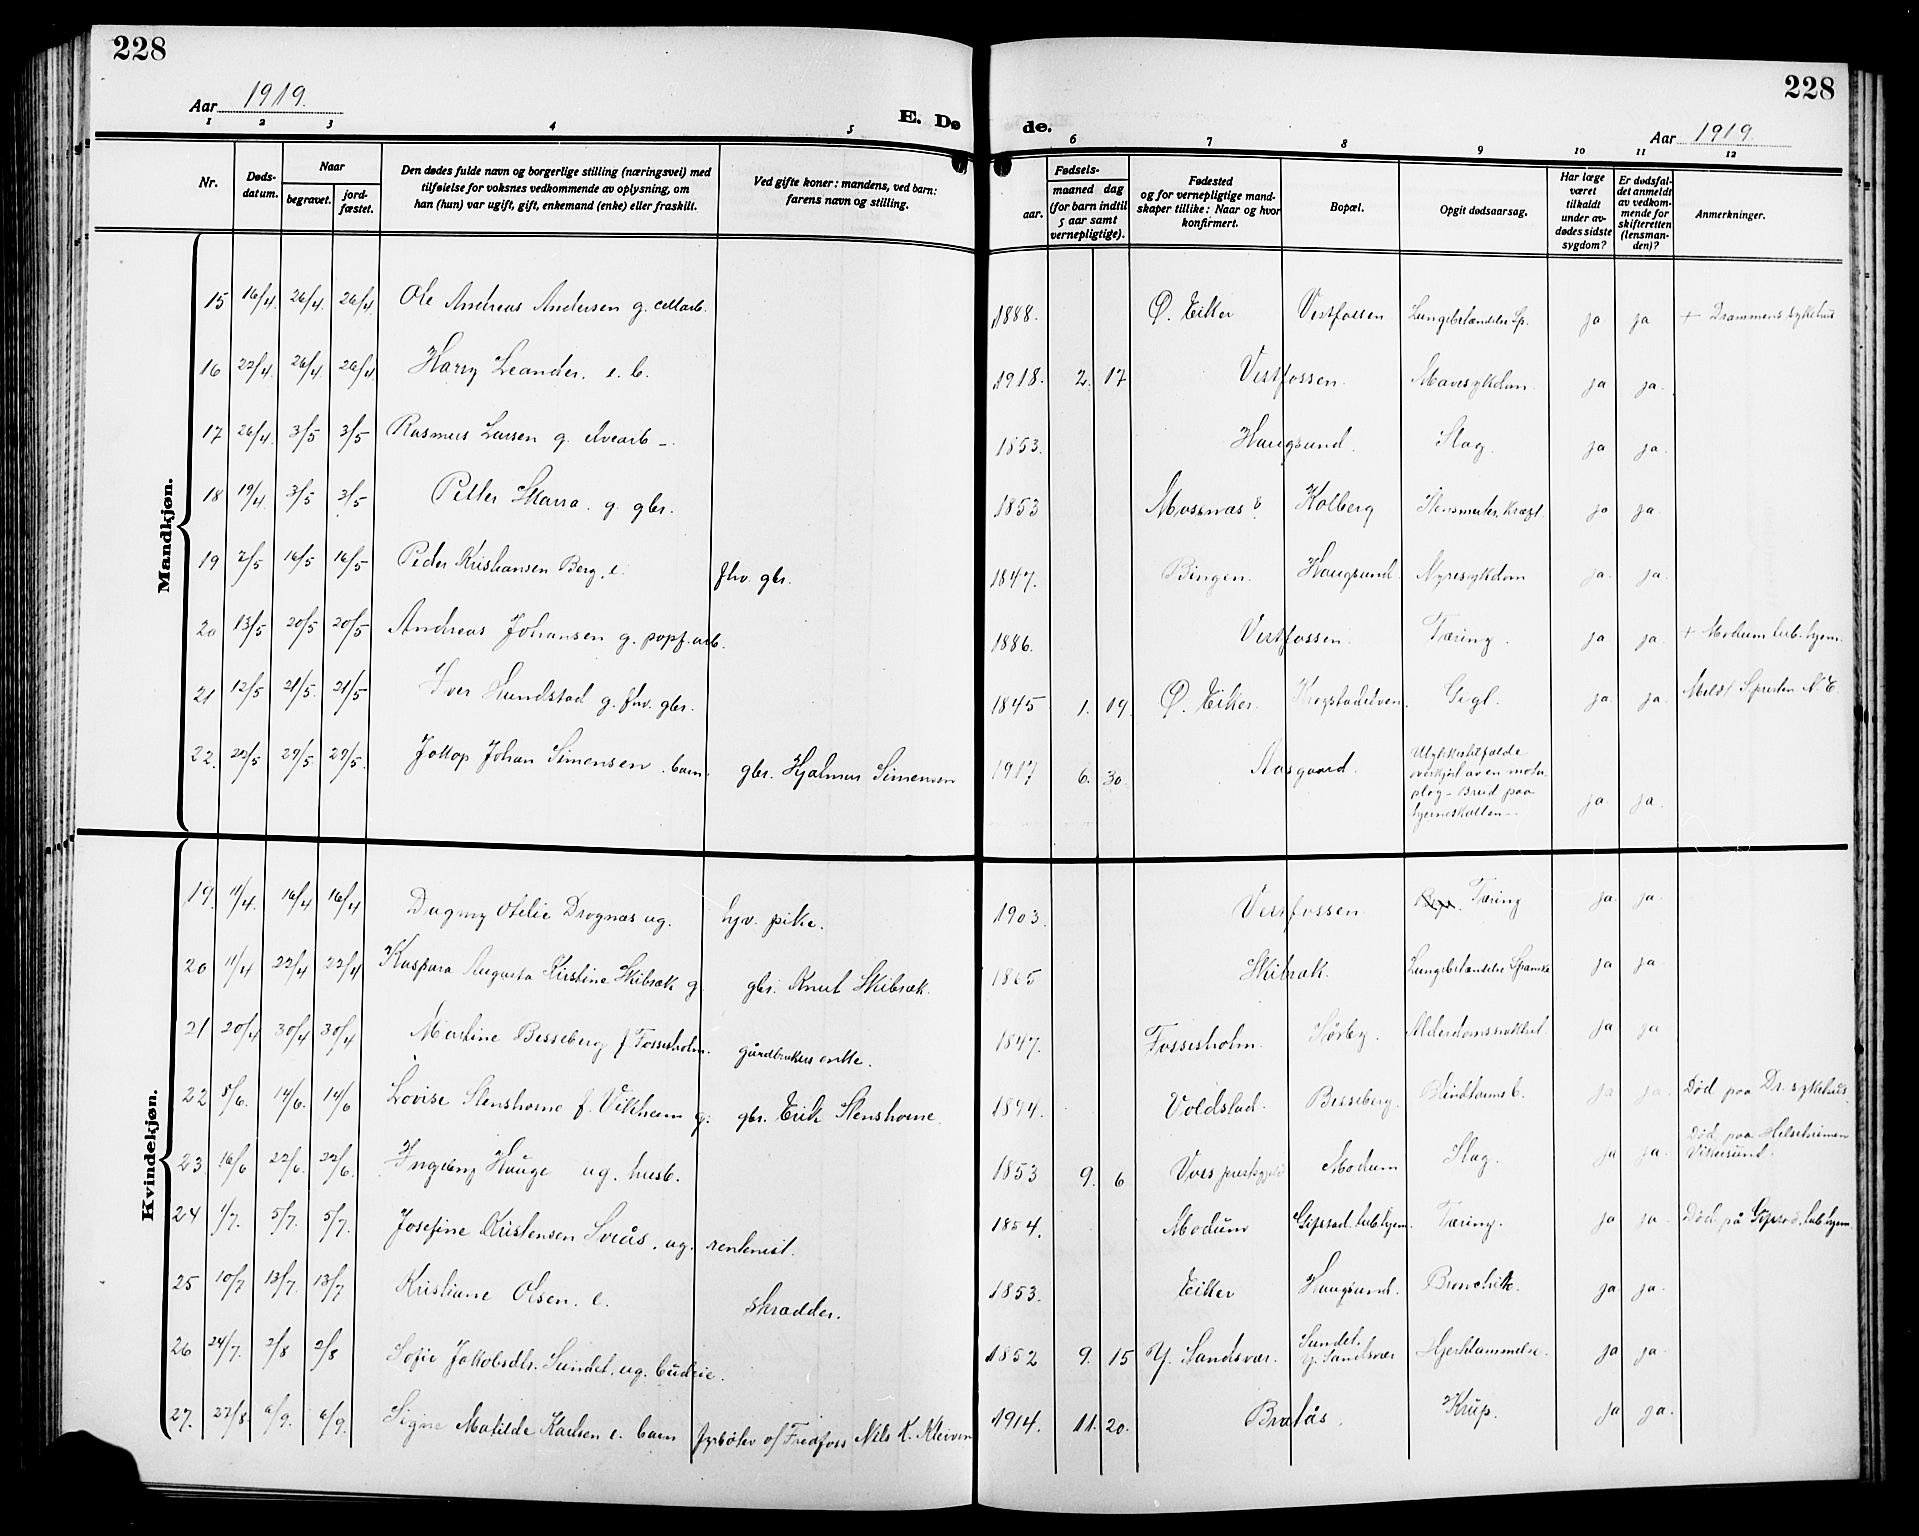 228
228
Aar 1919.
E. Dø
de.
Aar 1919.
1 2 3 4 5 6 7 8 9 10 11 12
Nr.
Døds-
datum.
Naar
begravet.
jord-
fæstet.
Den dødes fulde navn og borgerlige stilling (næringsvei) med
tilføielse for voksnes vedkommende av oplysning, om
han (hun) var ugift, gift, enkemand (enke) eller fraskilt.
Ved gifte koner: mandens, ved barn:
farens navn og stilling.
Fødsels-
aar.
maaned dag
(for barn indtil
5 aar samt
vernepligtige).
Fødested
og for vernepligtige mand-
skaper tillike: Naar og hvor
konfirmert.
Bopæl.
Opgit dødsaarsag.
Har læge
været
tilkaldt
under av-
dødes sidste
sygdom?
Er dødsfal-
det anmeldt
av vedkom-
mende for
skifteretten
(lensman-
den)?
Anmerkninger.
Mandkjøn.
15 16/4. 26/4. 26/4 Ole Andreas Andersen g. cellarb. 1888. Ø. Eiker Vestfossen Lungebetændelse Sp. ja ja + Drammens sykehus
16 22/4. 26/4 26/4 Harry Leander. e. b. 1918. 2. 17 Vestfossen. Mavesykdom ja ja.
17 26/4. 3/5 3/5 Rasmus Larsen g. elvearb -. 1853. Haugsund. Slag. ja ja.
18 19/4 3/5 3/5 Petter Skarra. g. gbr. 1853 Mossnæs Kolberg ja ja.
19 7/5 16/5 16/5 Peder Kristiansen Berg. e. fhv. gbr. 1847. Bingen. Haugsund. Nyresykdom ja. ja.
20 13/5 20/5 20/5 Andreas Johansen g. papf. arb. 1886. Vestfossen. Tæring. ja ja. + Modum tub. hjem.
21 12/5 21/5. 21/5 Iver Lundstad g. fhv. gbr. 1845 1. 19. Ø. Eiker. Krogstadelven. Gigt. ja. ja. Meldt Spresten N. E.
22. 22/5 27/5 27/5. Jokop Johan Simensen. barn. gbr. Hjalmar Simensen 1917 6. 30. Aasgaard. Ulykkestilfælde
overkjørt av en motor-
plog - Brud paa
hjerneskallen -. ja ja.
Kvindekjøn.
19. 11/4. 16/4 16/4 Dagny Otelie Drognæs ug. hjv. pike. 1903. Vestfossen. Tæring ja. ja.
20 11/4 22/4 22/4 Kaspara Augusta Kirstine Skibræk g. gbr. Knut Skibræk. 1865 Skibræk. Lungebetændelse Spanske ja ja.
21 20/4 30/4 30/4 Martine Besseberg f. Fossesholm. gårdbrukers enke. 1847. Fossesholm. Sörby. Alderdomssvakhet ja ja
22 5/6. 14/6. 14/6 Lovise Stenshorne f. Vikheim g. gbr. Erik Stenshorne. 1894. Voldstad. Besseberg. Blindtarmsb. ja ja. Död paa Dr. sykehus.
23 16/6 22/6. 22/6. Ingeborg Hauge ug. husb. 1853 9. 6 Voss prestegjeld Modum Slag. ja ja. Död paa Helseheimen
Vikersund.
24 1/7. 5/7. 5/7. Josefine Kristensen Sveås. ug. rentenist. 1854. Modum Gipsrod. tub. hjem. Tæring. ja ja. Död på Gipsrod. tub. hjem.
25 10/7 13/7. 13/7 Kristiane Olsen. e. skrædder. 1853. Eiker Haugsund. Bronchitt. ja ja.
26 24/7. 2/8 2/8 Sofie Jakobsdtr. Sundet. ug. budeie. 1852 9. 15 Y. Sandsvær. Sundet.
Y. Sandsvær Hjertelammelse. ja ja.
27. 27/8 6/9. 6/9. Signe Matilde Karlsen e. barn fyrböter v/ Fredfoss Nils K. Kleiven 1914. 11. 20. Bråtås. Krup. ja ja.